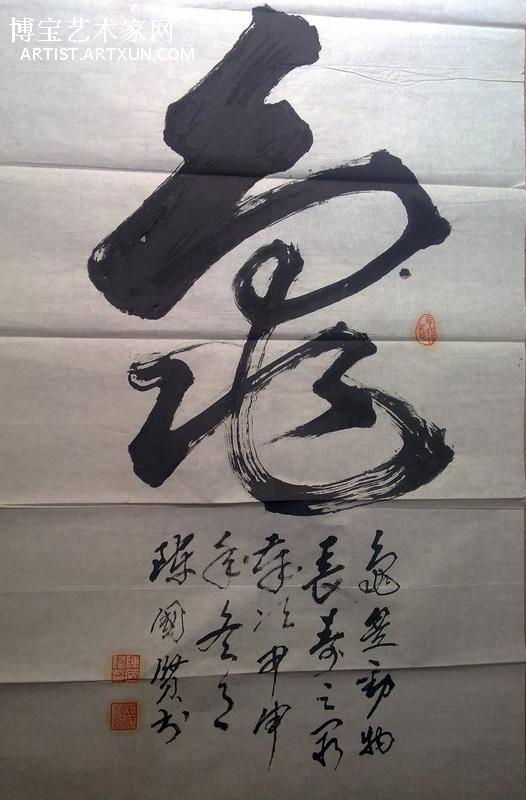 博宝艺术家网
ARTIST.ARTXUN.COM
龟
龟是动物
长寿之最
岁次甲申
年冬月
陈國贤书